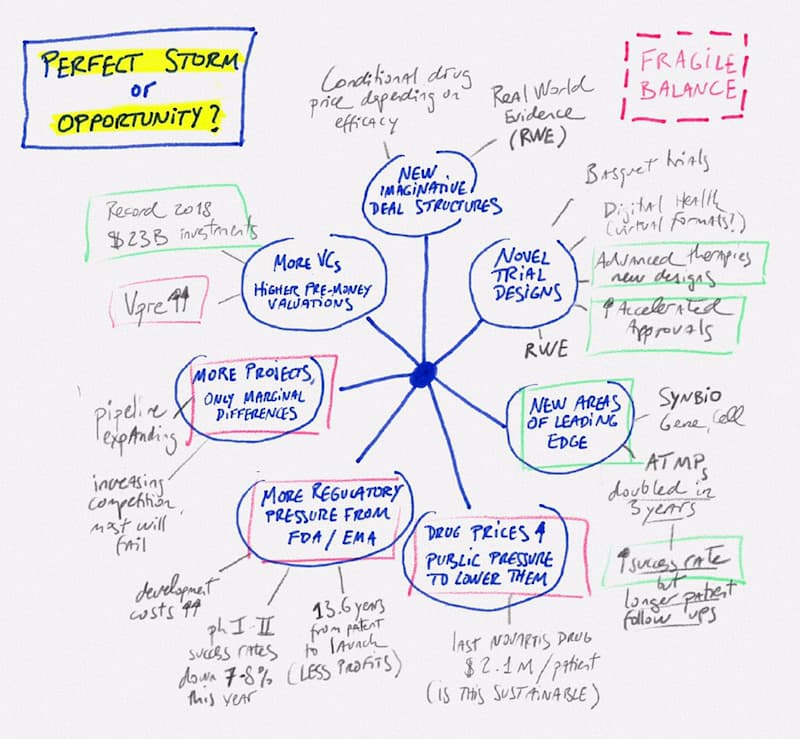 PERFECT STORM
or
OPPORTUNITY?
FRAGILE
BALANCE
Conditional drug
price depending on
efficacy
Real World
Evidence
(RWE)
NEW
IMAGINATIVE
DEAL STRUCTURES
Basquet trials
Digital Health
(virtual formats!)
Advanced therapies
new designs
↑ Accelerated
Approvals
RWE
NOVEL
TRIAL
DESIGNS
Record 2018
$23B investments
Vpre ↑↑
MORE VCs
HIGHER PRE-MONEY
VALUATIONS
MORE PROJECTS,
ONLY MARGINAL
DIFFERENCES
pipeline
expanding
increasing
competition,
most will
fail
NEW AREAS
OF LEADING
EDGE
SYNBIO
Gene, Cell
ATMPs
doubled in
3 years
↑ success rate
but
longer patient
follow ups
MORE REGULATORY
PRESSURE FROM
FDA / EMA
development
costs ↑↑
ph I-II
success rates
down 7-8%
this year
13.6 years
from patent
to launch
(LESS PROFITS)
DRUG PRICES ↑
PUBLIC PRESSURE
TO LOWER THEM
last NOVARTIS DRUG
$2.1M/patient
(IS THIS SUSTAINABLE)